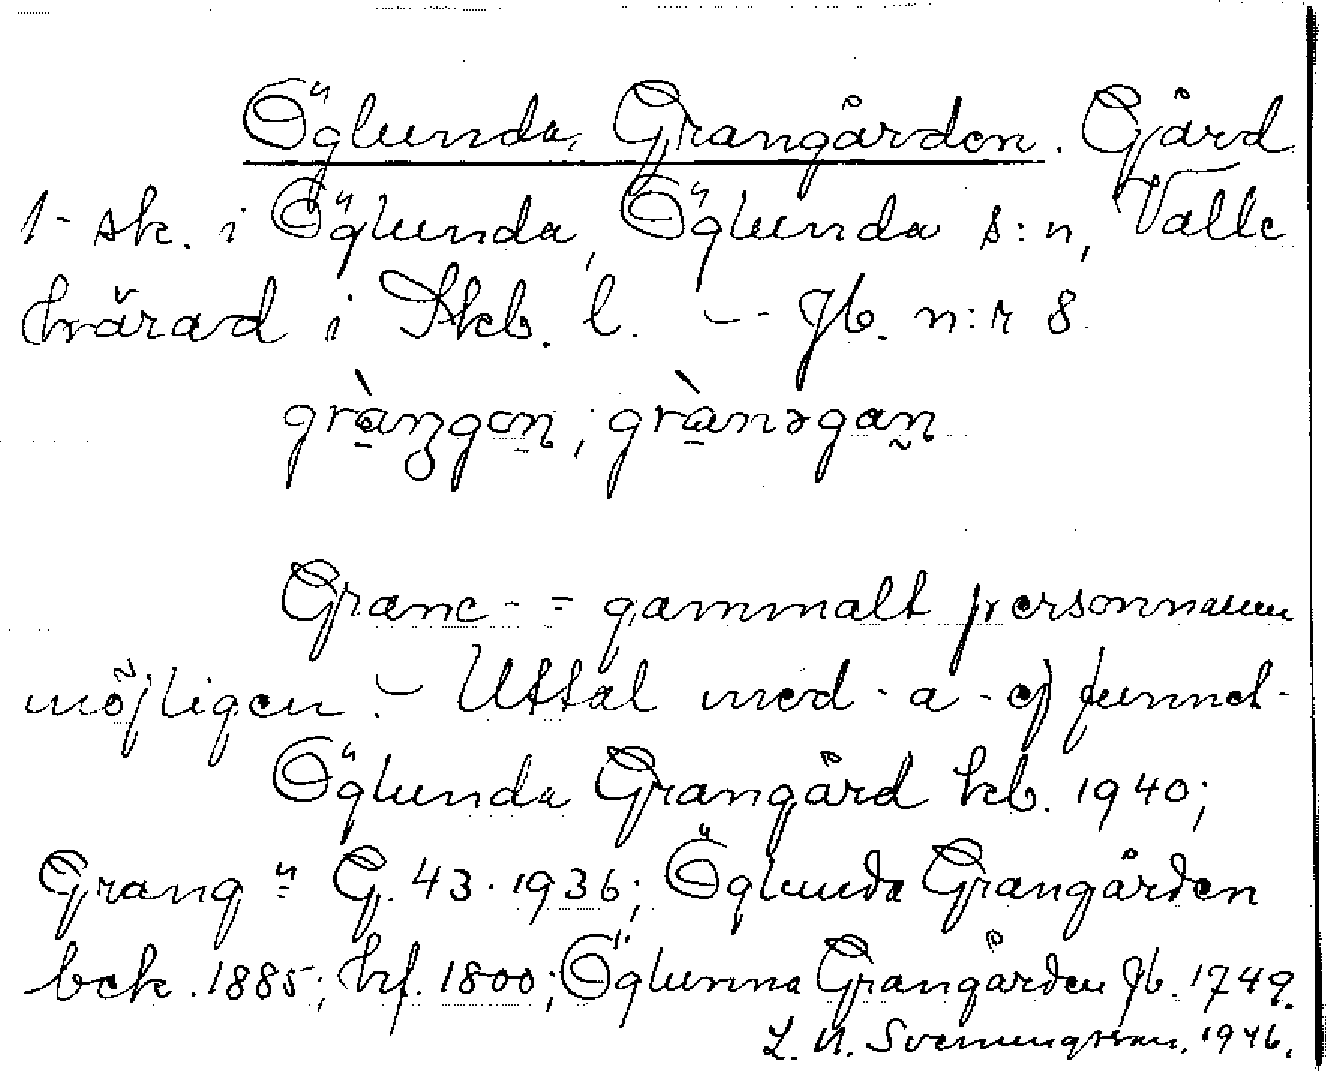 Öglunda, Grangården. Gård
1- sk. i Öglunda, Öglunda s:n, Valle
härad i Skb. l. - Jb. n:r 8.
gràngɑn, grànəgan
Grane- = gammalt personnamn
möjligen. - Uttal med -a- ej funnet-
Öglunda Grangård kb. 1940;
Grang = G. 43. 1936; Öglunda Grangården
bek. 1885; hf. 1800; Öglunna Grangården Jb. 1749.
1946.